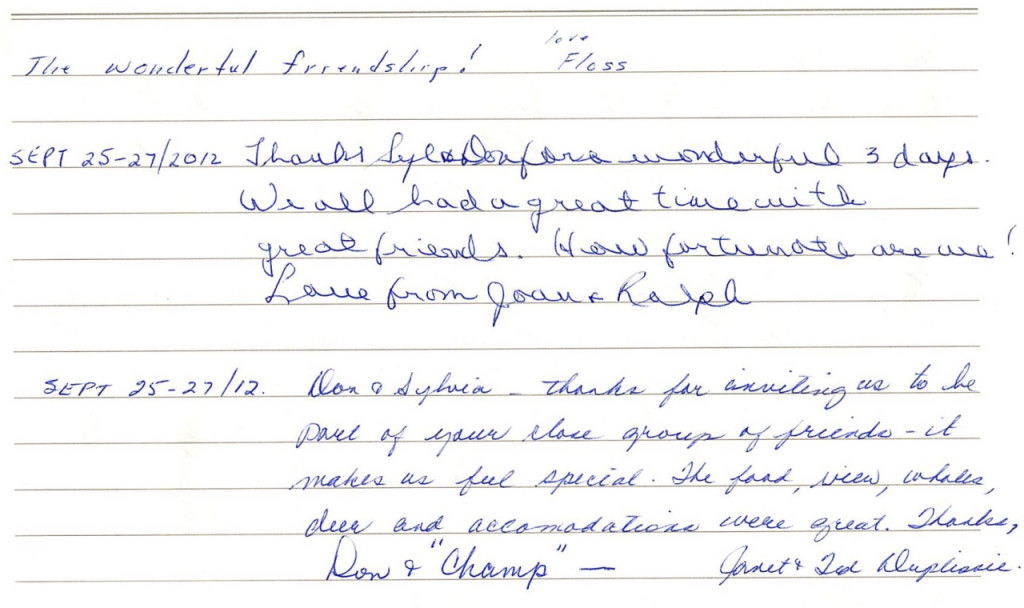 The wonderful friendship! love
Floss
SEPT 25-27/2012 Thanks Syl & Don for a wonderful 3 days.
We all had a great time with
great friends. How fortunate are we!
Love from Joan & Ralph
SEPT 25-27/12. Don & Sylvia - thanks for inviting us to be
part of your close group of friends - it
makes us feel special. The food, view, whales,
deer and accomodations were great. Thanks,
Don & "Champ" — Janet & Ted Duplissie.